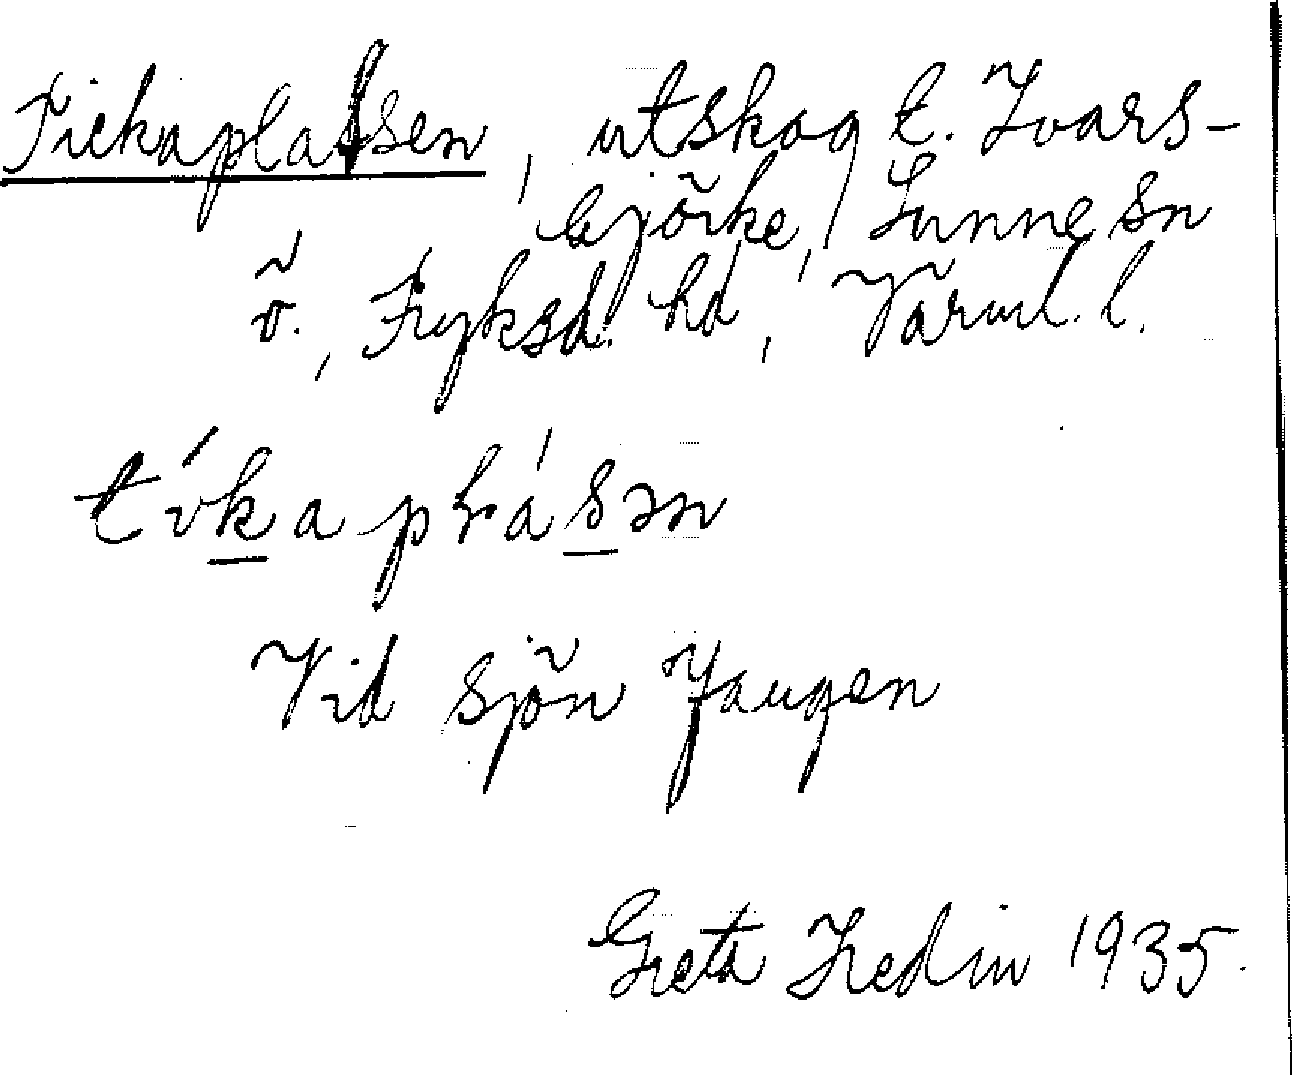 Tickaplassen, utskog t. Ivars-
björke, Sunne sn
ö., Fryksd. hd, Värml. l.
Vid sjön
Greta Hedin 1935.